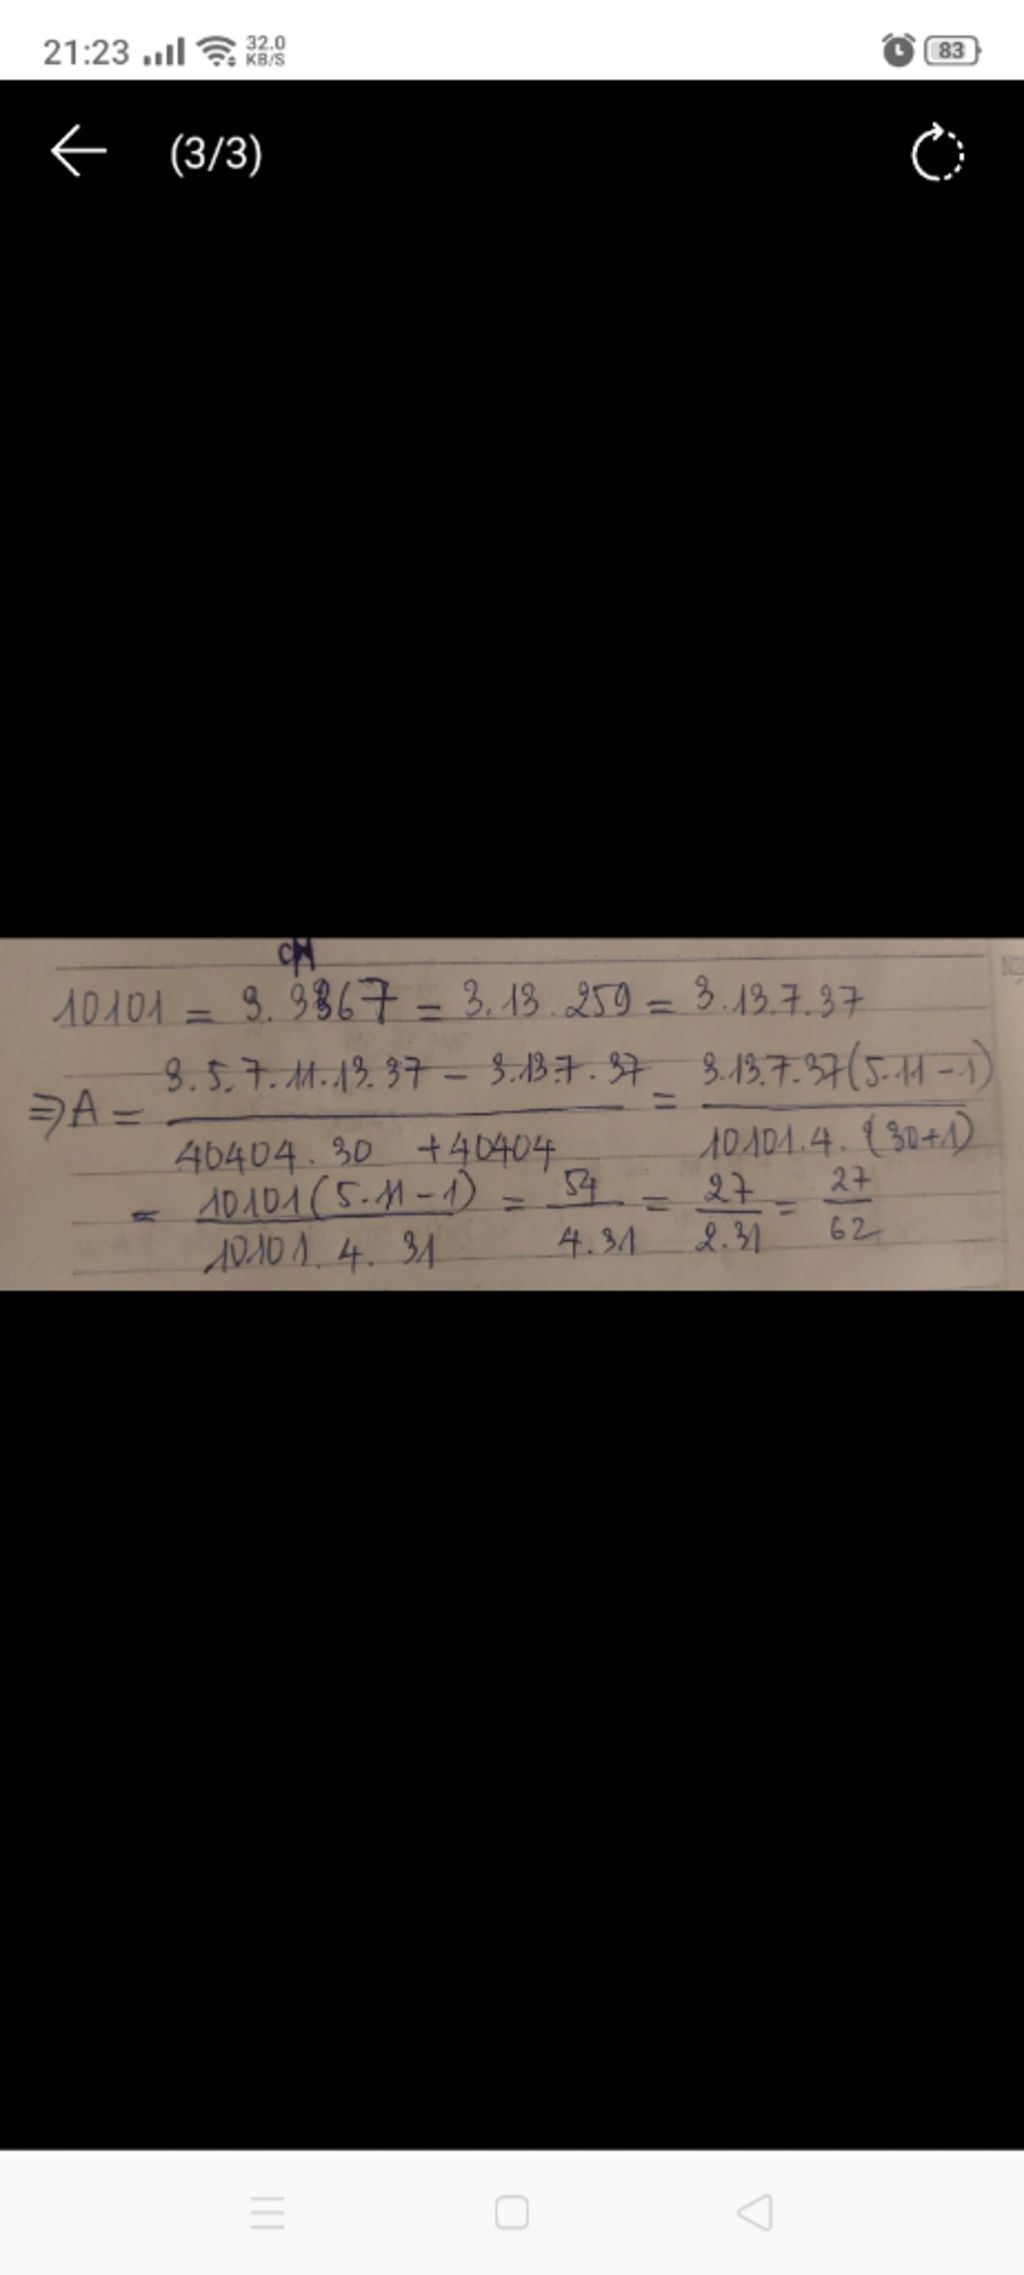 21:23 32.0 KB/S 83
(3/3)
CM
10101 = 3. 3367 = 3. 13. 259 = 3. 13. 7. 37
⇒ A = (3. 5. 7. 11. 13. 37 – 3. 13. 7. 37) / (40404. 30 + 40404) = (3. 13. 7. 37(5. 11 – 1)) / (10101. 4. (30+1))
= (10101(5. 11 – 1)) / (10101. 4. 31) = 54 / (4. 31) = 27 / (2. 31) = 27 / 62